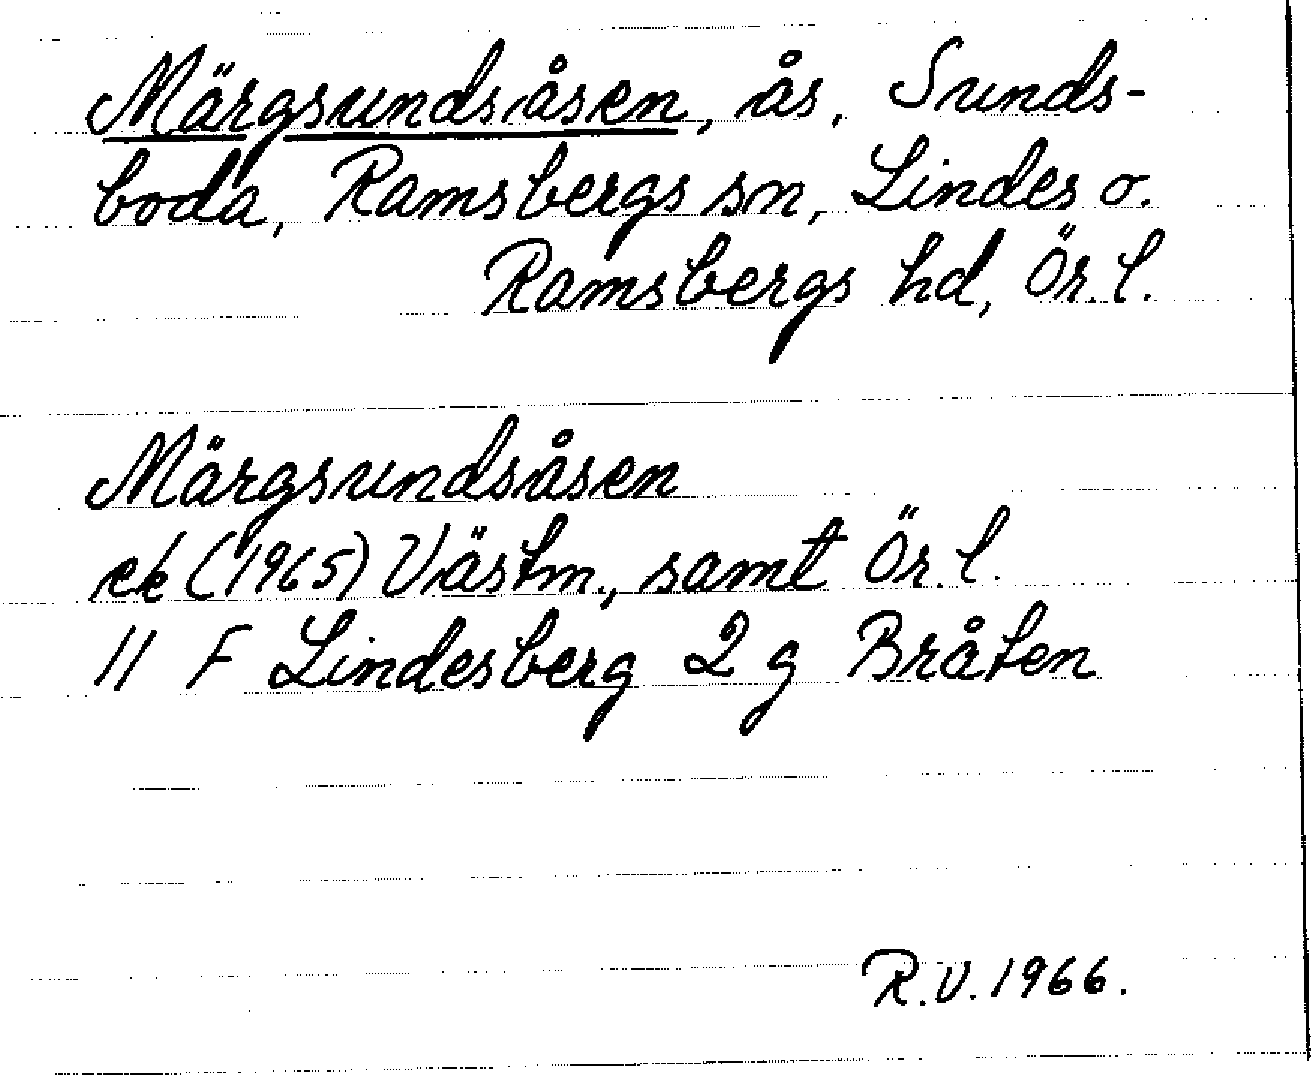 Märgsundsåsen, ås, Sunds-
boda, Ramsbergs sn, Lindes o.
Ramsbergs hd, Ör. l.
Märgsundsåsen
ek (1965) Västm., samt Ör. l.
11 F Lindesberg 2 g Bråten
R.V. 1966.